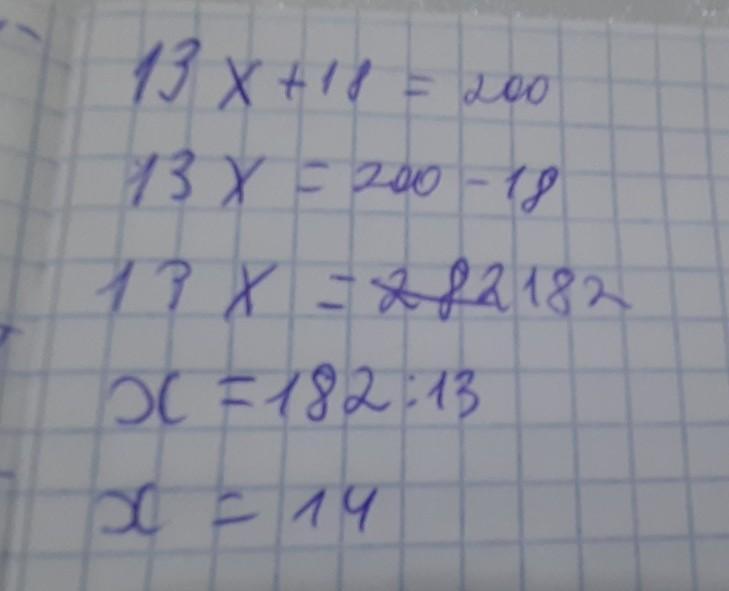 13x+18 = 200
13x = 200-18
13x = 282 182
x = 182:13
x = 14